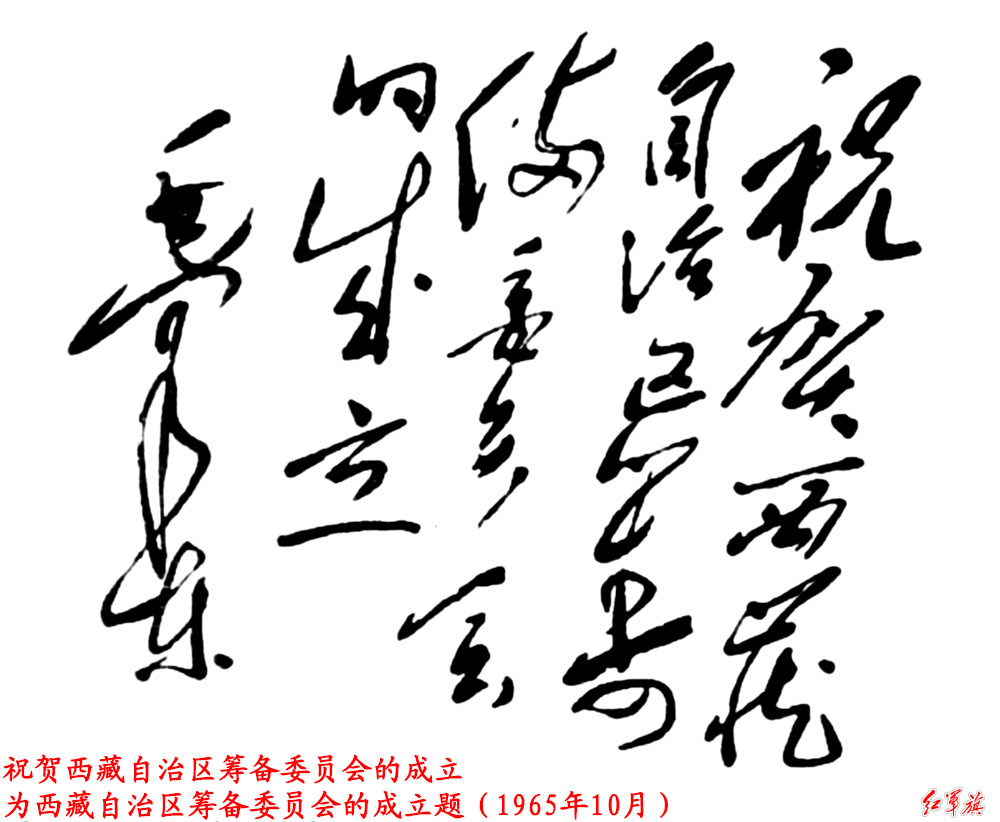 祝贺西藏
自治区筹
備委员会
的成立
毛泽东
祝贺西藏自治区筹备委员会的成立
为西藏自治区筹备委员会的成立题（1965年10月）
红军旗